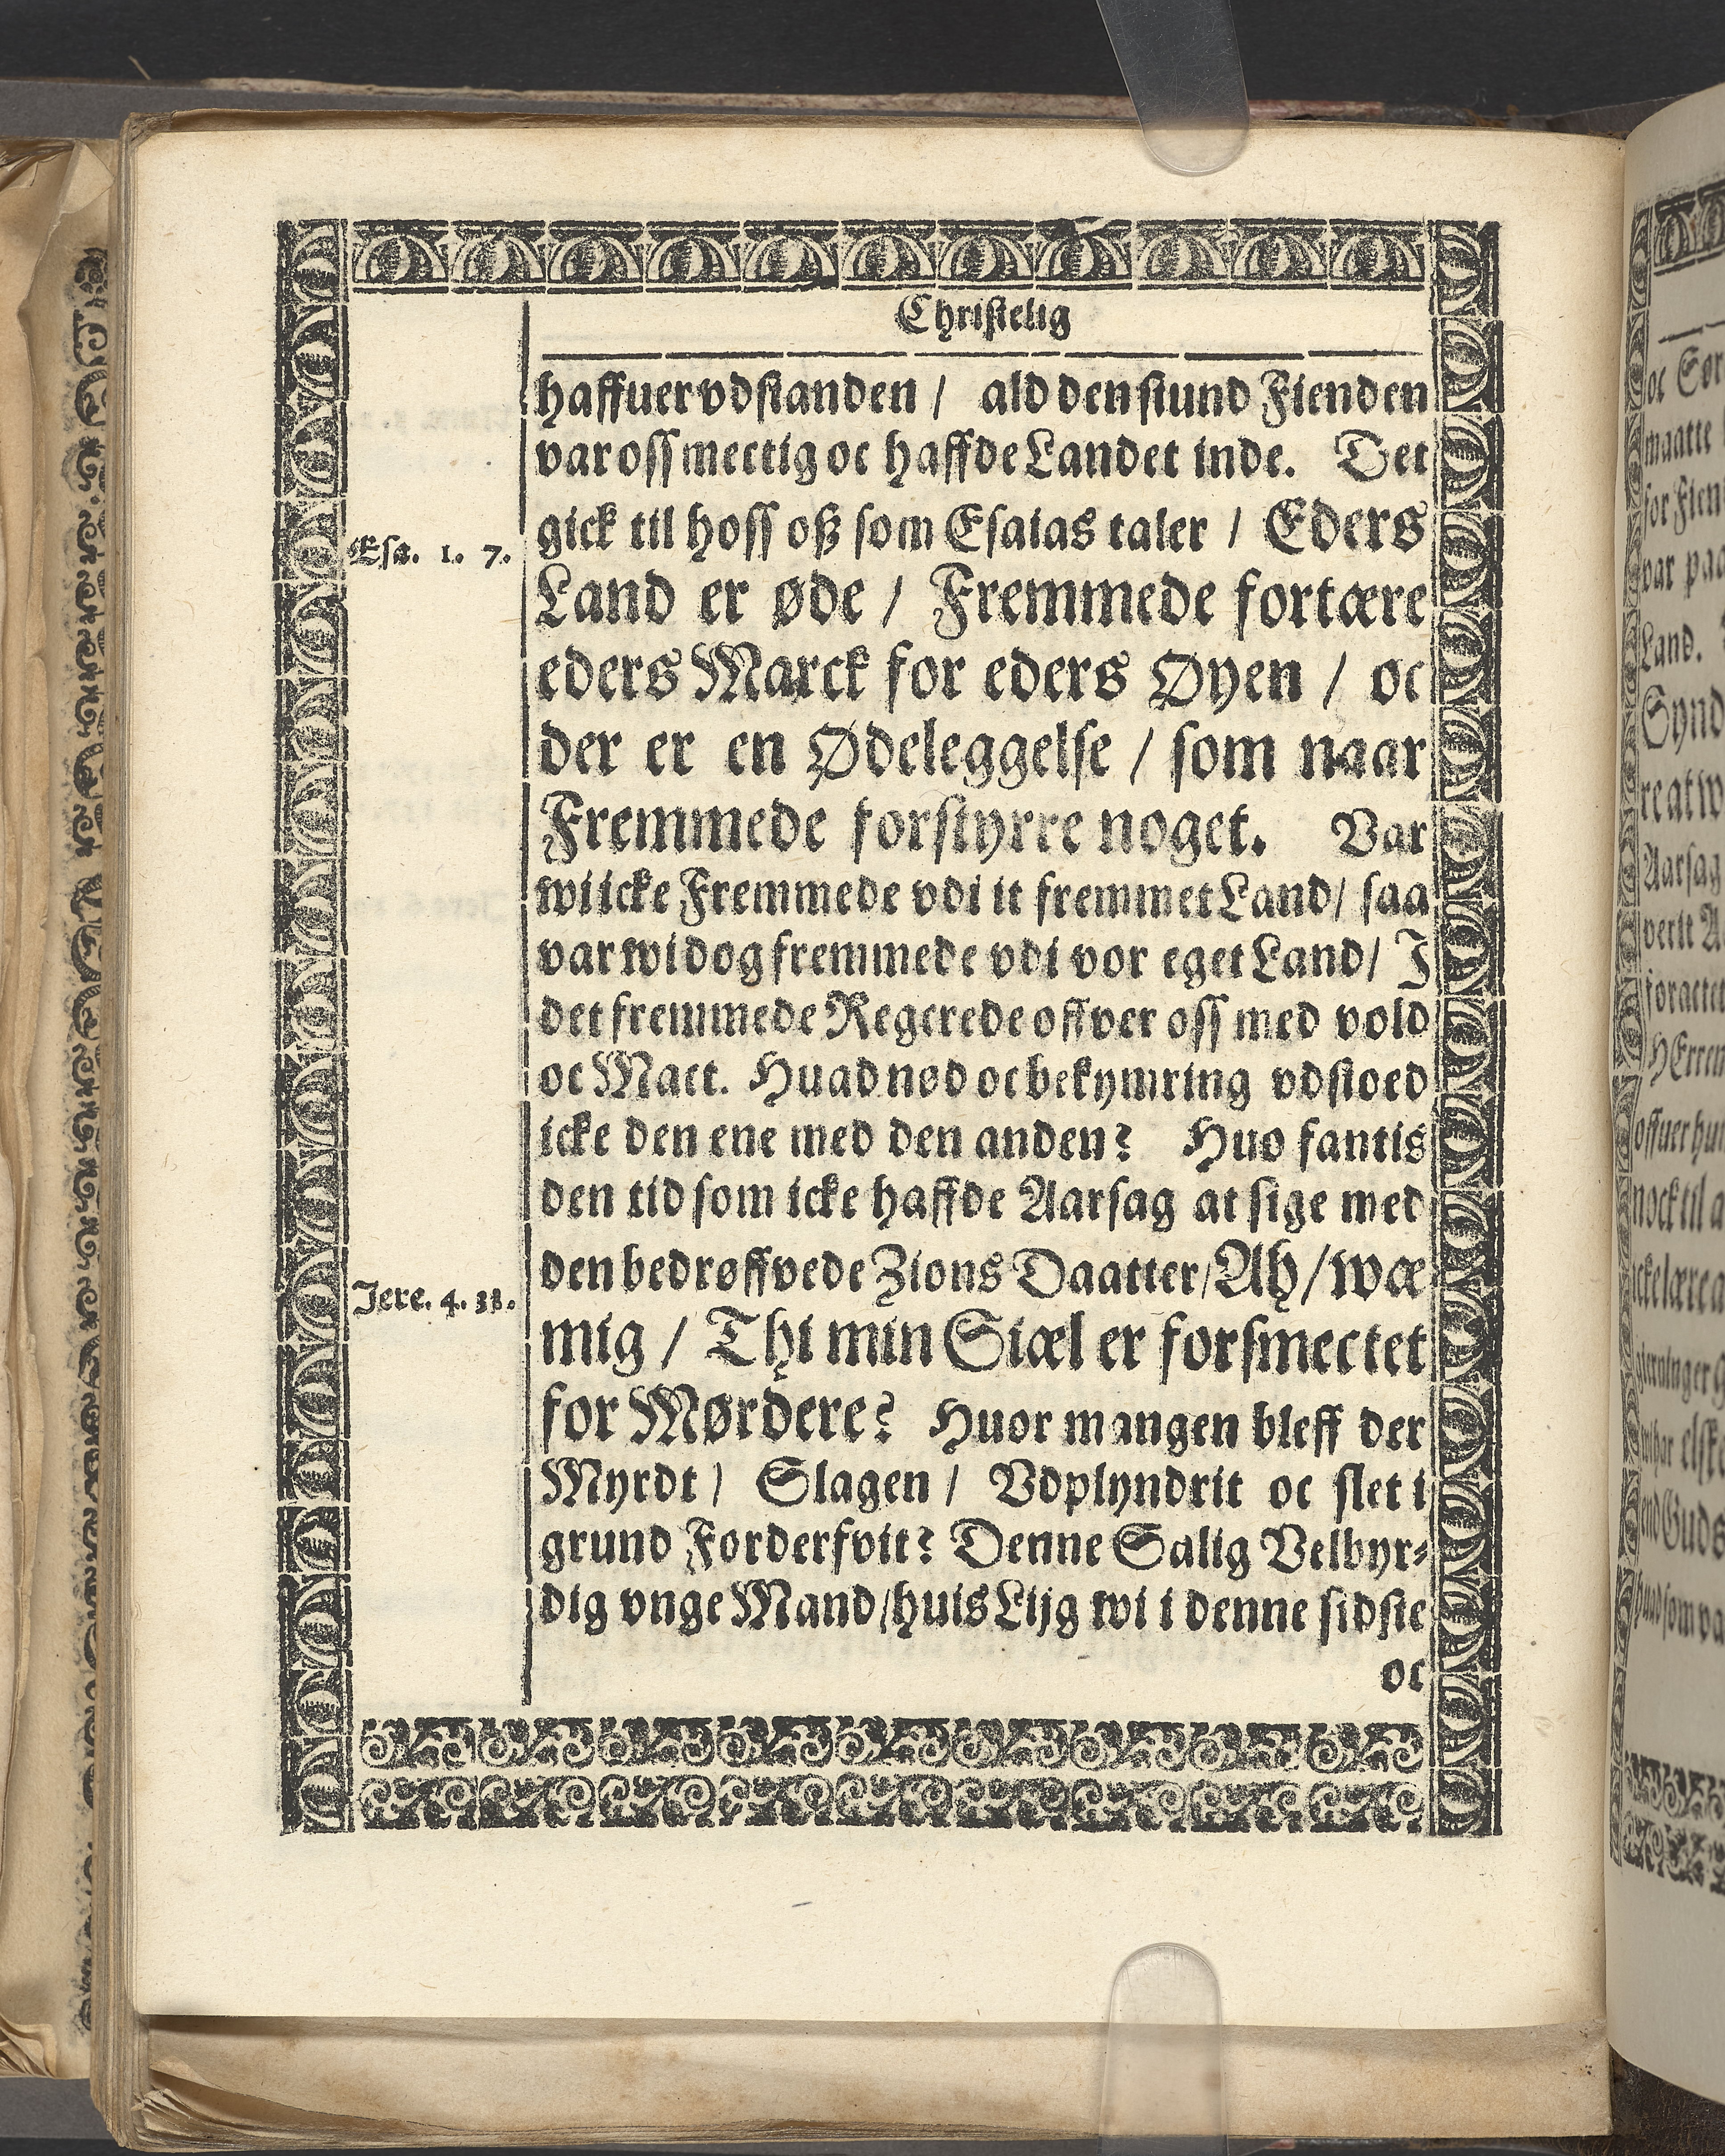 Christelig
haffuer vdstanden / ald den stund Fienden
var oss mectig oc haffde Landet inde. Det
gick til hoss oß som Esaias taler / Eders
Esa. 1. 7.
Land er øde / Fremmede fortære
eders Marck for eders Øyen / oc
der er en Ødeleggelse / som naar
Fremmede forstyrre noget. Var
wi icke Fremmede vdi it fremmet Land / saa
var wi dog fremmede vdi vor eget Land / I
det fremmede Regerede offver oss med vold
oc Mact. Huad nød oc bekymring vdstoed
icke den ene med den anden? Huo fantis
den tid som icke haffde Aarsag at sige med
den bedrøffvede Zions Daatter / Ah / wæ
Jere. 4. 31.
mig / Thi min Siæl er forsmectet
for Mørdere? Huor mangen bleff der
Myrdt / Slagen / Vdplyndrit oc slet i
grund Forderfvit? Denne Salig Velbyr-
dig vnge Mand / huis Lijg wi i denne sidste
oc